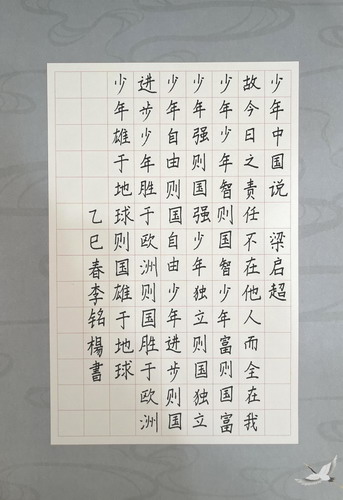 少年中国说 梁启超
故今日之责任不在他人而全在我
少年少年智则国智少年富则国富
少年强则国强少年独立则国独立
少年自由则国自由少年进步则国
进步少年胜于欧洲则国胜于欧洲
少年雄于地球则国雄于地球
乙巳春李铭楊書